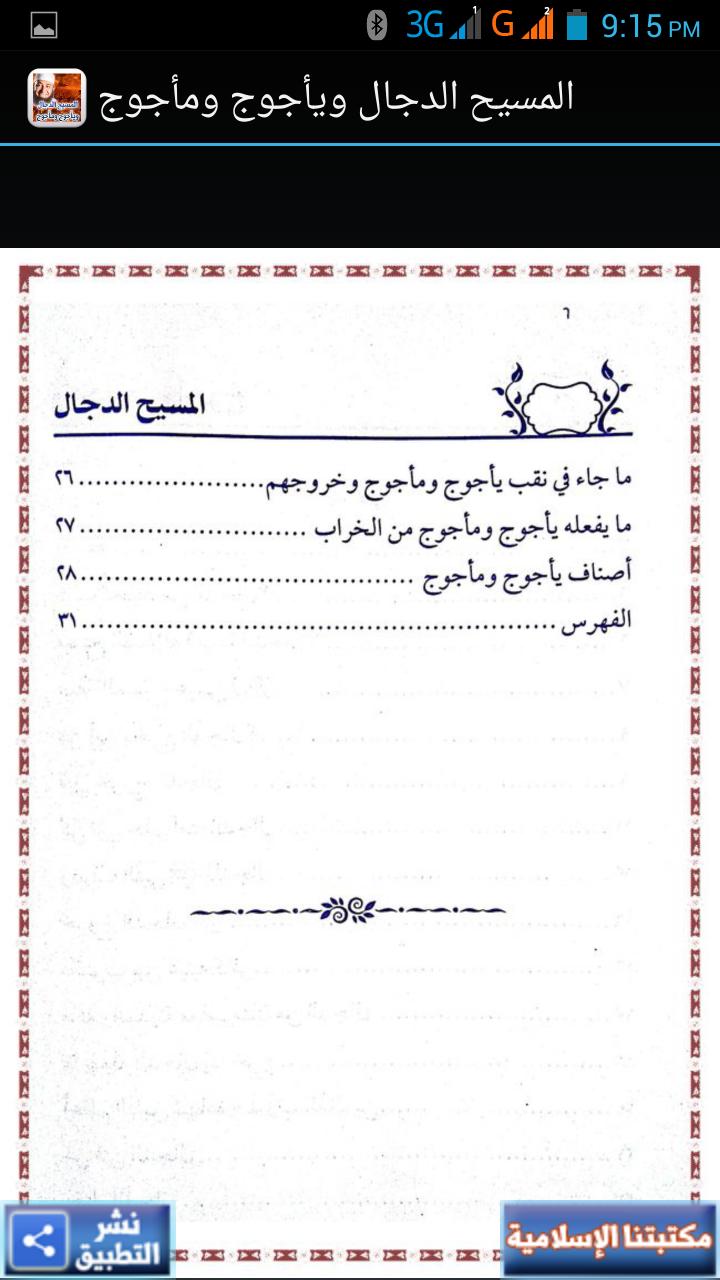 3G 1 G 2 9:15 PM
المسيح الدجال ويأجوج ومأجوج
٦
المسيح الدجال
ما جاء في نقب يأجوج ومأجوج وخروجهم ...................... ٢٦
ما يفعله يأجوج ومأجوج من الخراب ........................... ٢٧
أصناف يأجوج ومأجوج ....................................... ٢٨
الفهرس ....................................................... ٣١
نشر التطبيق
مكتبتنا الإسلامية